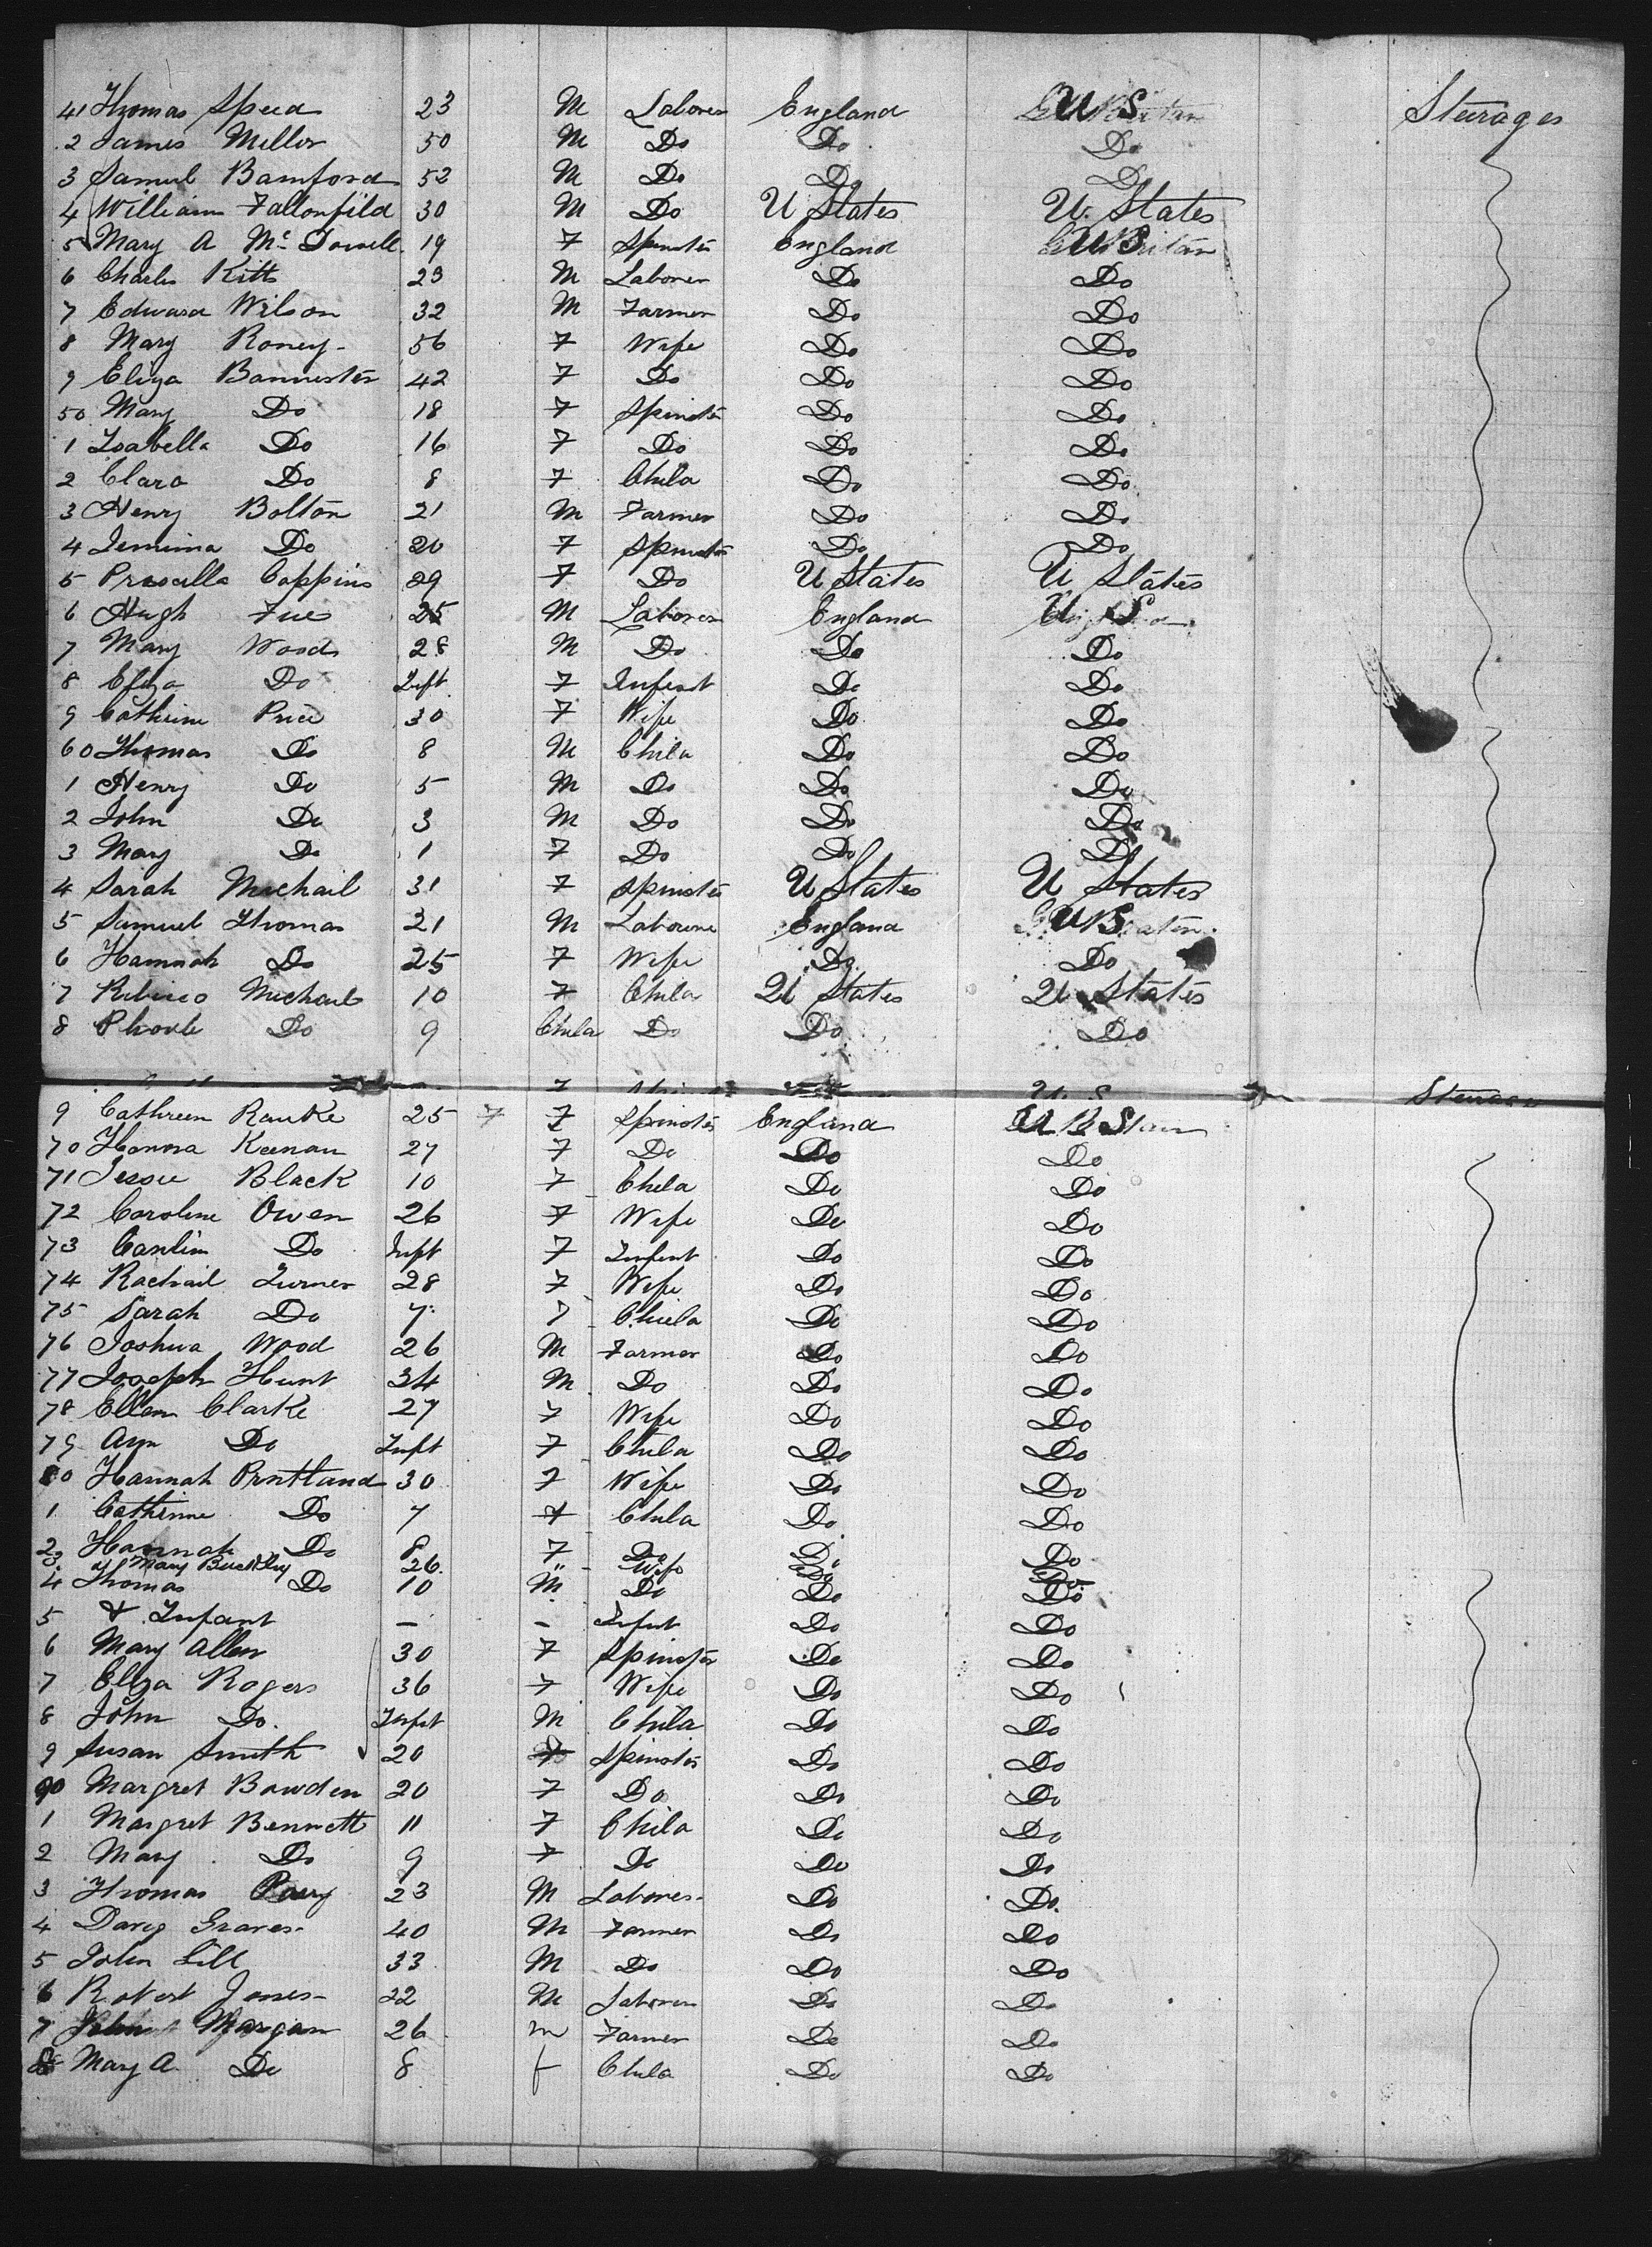 41 Thomas Speed 23 M Laborer England U S Steerages
2 James Mellor 50 M Do Do Do
3 Samuel Bamford 52 M Do Do Do
4 William Fallonfild 30 M Do U States U. States
5 Mary A Mc Dowell 19 F Spinster England U S
6 Charles Kitts 23 M Laborer Do Do
7 Edward Wilson 32 M Farmer Do Do
8 Mary Roney 56 F Wife Do Do
9 Eliza Bannister 42 F Do Do Do
50 Mary Do 18 F Spinster Do Do
1 Isabella Do 16 F Do Do Do
2 Clara Do 8 F Child Do Do
3 Henry Bolton 21 M Farmer Do Do
4 Jemima Do 20 F Spinster Do Do
5 Prascilla Coppins 29 F Do U States U States
6 Hugh 25 M Laborer England U S
7 Mary Woods 28 M Do Do Do
8 Eliza Do Inft F Infant Do Do
9 Catherine Price 30 F Wife Do Do
60 Thomas Do 8 M Child Do Do
1 Henry Do 5 M Do Do Do
2 John Do 3 M Do Do Do
3 Mary Do 1 F Do Do Do
4 Sarah Michail 31 F Spinster U States U States
5 Samuel Thomas 21 M Labourer England U S
6 Hannah Do 25 F Wife Do Do
7 Rebicca Michail 10 F Child U States U States
8 Phoebe Do 9 Child Do Do Do
9 Cathreen Rourke 25 F F Spinster England U S
70 Honora Keenan 27 F Do Do Do
71 Jessie Black 10 F Child Do Do
72 Caroline Owen 26 F Wife Do Do
73 Do Inft F Infant Do Do
74 Rachail Turner 28 F Wife Do Do
75 Sarah Do 7 F Child Do Do
76 Joshua Wood 26 M Farmer Do Do
77 Joseph Hunt 34 M Do Do Do
78 Ellen Clarke 27 F Wife Do Do
79 Ann Do Inft F Child Do Do
80 Hannah Prntland 30 F Wife Do Do
1 Catherine Do 7 F Child Do Do
2 Hannah Do 8 F Do Do Do
3 Mary Buckley 26 " Wife Do Do
4 Thomas Do 10 M Do Do Do
5 & Infant – – Infnt Do Do
6 Mary Allen 30 F Spinster Do Do
7 Eliza Rogers 36 F Wife Do Do
8 John Do. Infnt M Child Do Do
9 Susan Smith 20 F Spinster Do Do
90 Margret Bowden 20 F Do Do Do
1 Margret Bennett 11 F Child Do Do
2 Mary Do 9 F Do Do Do
3 Thomas Parry 23 M Laborer Do Do.
4 Graves 40 M Farmer Do Do
5 John Lill 33 M Do Do Do
6 Robert Jones 22 M Laborer Do Do
7 John Morgan 26 m Farmer Do Do
8 Mary A Do 8 f Child Do Do